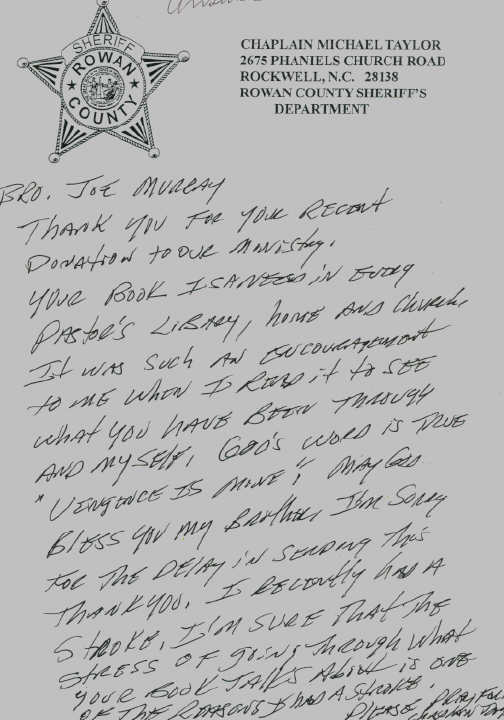 SHERIFF
ROWAN
COUNTY
CHAPLAIN MICHAEL TAYLOR
2675 PHANIELS CHURCH ROAD
ROCKWELL, N.C. 28138
ROWAN COUNTY SHERIFF'S
DEPARTMENT
BRO. JOE MURRAY
THANK YOU FOR YOUR RECENT
DONATION TO OUR MINISTRY.
YOUR BOOK IS A NEED IN EVERY
PASTOR'S LIBRARY, HOME AND CHURCH.
IT WAS SUCH AN ENCOURAGEMENT
TO ME WHEN I READ IT TO SEE
WHAT YOU HAVE BEEN THROUGH
AND MYSELF. GOD'S WORD IS TRUE
"VENGENCE IS MINE". MAY GOD
BLESS YOU MY BROTHER. I'M SORRY
FOR THE DELAY IN SENDING THIS
THANK YOU. I RECENTLY HAD A
STROKE. I'M SURE THAT THE
STRESS OF GOING THROUGH WHAT
YOUR BOOK TALKS ABOUT IS ONE
OF THE REASONS I HAD A STROKE
PLEASE PRAY FOR